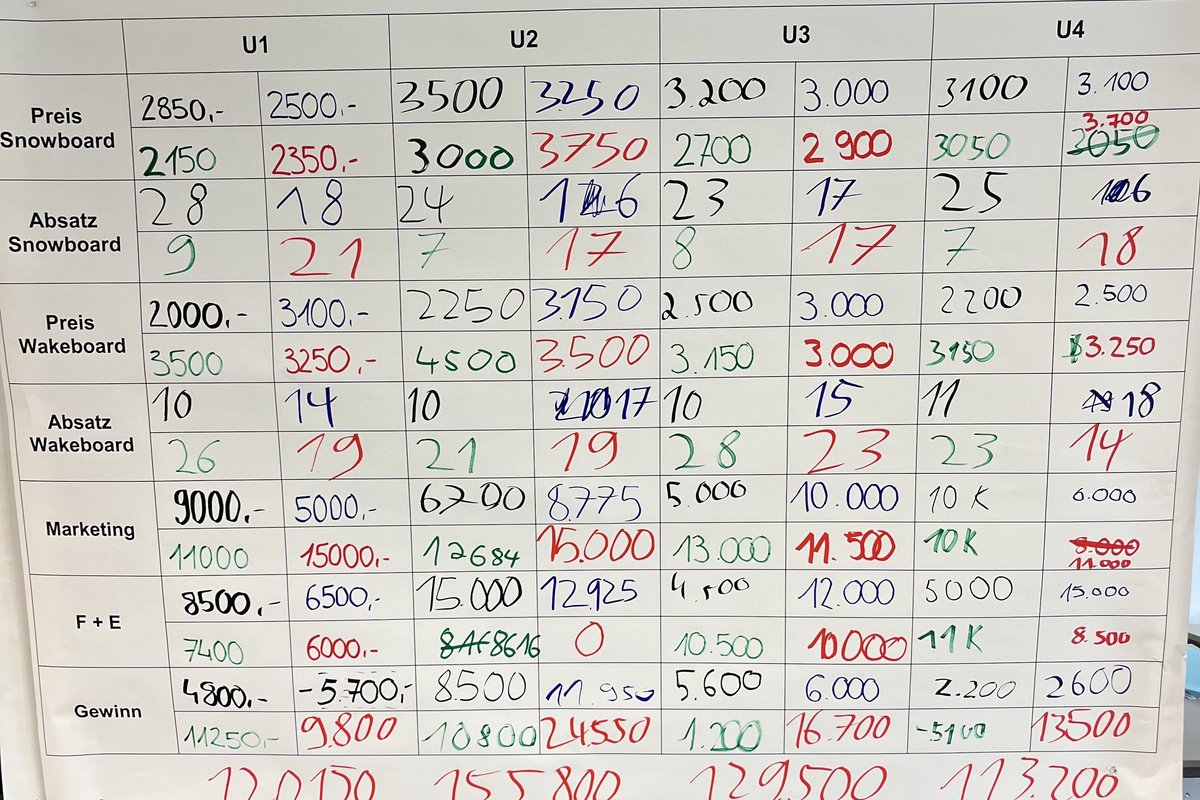 U1 U2 U3 U4
Preis Snowboard
2850,- 2500,- 3500 3250 3.200 3.000 3100 3.100
2150 2350,- 3000 3750 2700 2 900 3050 3.700 3050
Absatz Snowboard
28 18 24 16 23 17 25 16
9 21 7 17 8 17 7 18
Preis Wakeboard
2000,- 3100,- 2250 3.150 2.500 3.000 2200 2.500
3500 3250,- 4500 3.500 3.150 3.000 3150 3.250
Absatz Wakeboard
10 14 10 17 10 15 11 18
26 19 21 19 28 23 23 14
Marketing
9000,- 5000,- 6700 8.775 5.000 10.000 10 K 6.000
11000 15000,- 12684 15.000 13.000 11.500 10K 9.000 11.000
F + E
8500,- 6500,- 15.000 12.925 4.500 12.000 5000 15.000
7400 6000,- 8616 0 10.500 10000 11K 8.500
Gewinn
4800,- -5.700,- 8500 11.950 5.600 6.000 2.200 2600
11250,- 9.800 10800 24.550 1.200 16.700 -5100 13500
120150 155.800 129.500 113.200